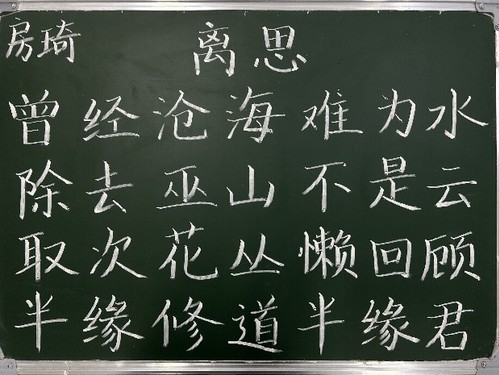 房琦
离思
曾经沧海难为水
除去巫山不是云
取次花丛懒回顾
半缘修道半缘君